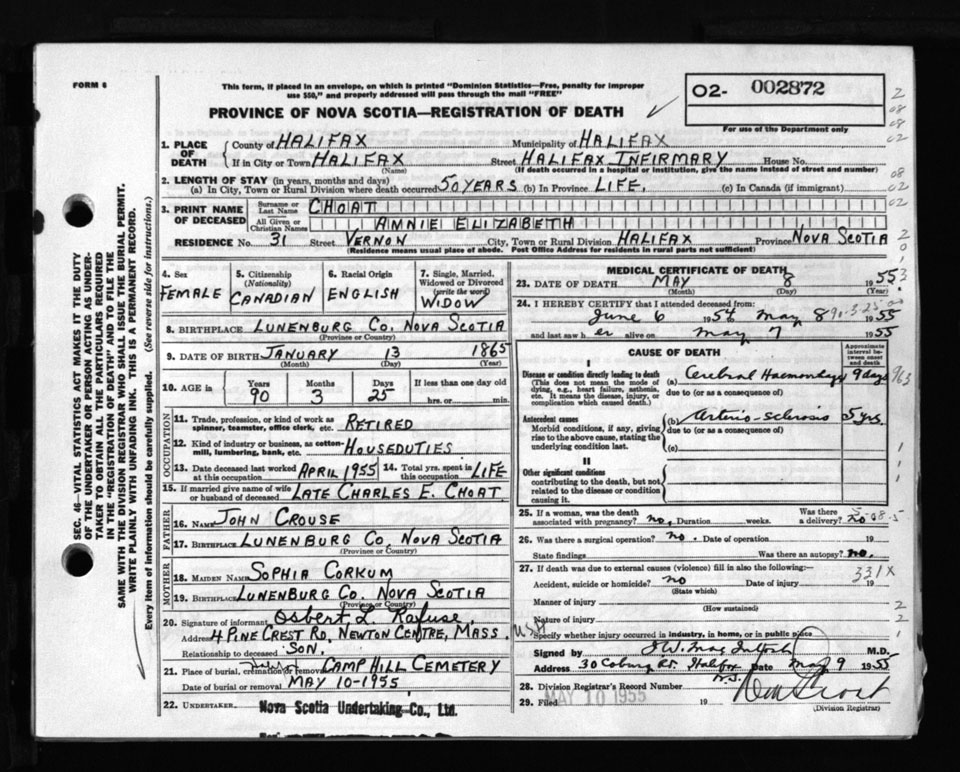 FORM 6
This form, if placed in an envelope, on which is printed "Dominion Statistics—Free, penalty for improper
use $50," and properly addressed will pass through the mail "FREE"
02- 002872
For use of the Department only
PROVINCE OF NOVA SCOTIA—REGISTRATION OF DEATH
1. PLACE OF DEATH
County of HALIFAX Municipality of HALIFAX
If in City or Town HALIFAX Street HALIFAX INFIRMARY House No.
(Name) (If death occurred in a hospital or institution, give the name instead of street and number)
2. LENGTH OF STAY (in years, months and days)
(a) In City, Town or Rural Division where death occurred 50 YEARS (b) In Province LIFE. (c) In Canada (if immigrant)
3. PRINT NAME OF DECEASED
Surname or Last Name CHOAT
All Given or Christian Names ANNIE ELIZABETH
RESIDENCE No. 31 Street VERNON City, Town or Rural Division HALIFAX Province NOVA SCOTIA
(Residence means usual place of abode. Post Office Address for residents in rural parts not sufficient)
4. Sex FEMALE
5. Citizenship (Nationality) CANADIAN
6. Racial Origin ENGLISH
7. Single, Married, Widowed or Divorced (write the word) WIDOW
8. BIRTHPLACE LUNENBURG CO. NOVA SCOTIA
(Province or Country)
9. DATE OF BIRTH JANUARY 13 1865
(Month) (Day) (Year)
10. AGE in Years 90 Months 3 Days 25 If less than one day old hrs. or min.
OCCUPATION
11. Trade, profession, or kind of work as spinner, teamster, office clerk, etc. RETIRED
12. Kind of industry or business, as cotton-mill, lumbering, bank, etc. HOUSEDUTIES
13. Date deceased last worked at this occupation APRIL 1955 14. Total yrs. spent in this occupation LIFE
15. If married give name of wife or husband of deceased LATE CHARLES E. CHOAT
FATHER
16. NAME JOHN CROUSE
17. BIRTHPLACE LUNENBURG CO. NOVA SCOTIA
(Province or Country)
MOTHER
18. MAIDEN NAME SOPHIA CORKUM
19. BIRTHPLACE LUNENBURG CO. NOVA SCOTIA
(Province or Country)
20. Signature of informant Osbert L. Rafuse
Address 4 PINE CREST RD. NEWTON CENTRE, MASS USA
Relationship to deceased SON.
21. Place of burial, cremation or removal CAMP HILL CEMETERY
Date of burial or removal MAY 10-1955
22. UNDERTAKER Nova Scotia Undertaking Co., Ltd.
MEDICAL CERTIFICATE OF DEATH
23. DATE OF DEATH MAY 8 1955
(Month) (Day)
24. I HEREBY CERTIFY that I attended deceased from
June 6 1954 May 8 1955
and last saw h er alive on May 7 1955
CAUSE OF DEATH
Approximate interval between onset and death
I
Disease or condition directly leading to death (a) Cerebral Haemorrhage 9 days
(This does not mean the mode of dying, e.g., heart failure, asthenia, etc. It means the disease, injury, or complication which caused death.) due to (or as a consequence of)
Antecedent causes (b) Arterio-sclerosis 5 yrs.
Morbid conditions, if any, giving rise to the above cause, stating the underlying condition last. due to (or as a consequence of)
(c)
II
Other significant conditions
contributing to the death, but not related to the disease or condition causing it.
25. If a woman, was the death associated with pregnancy? no. Duration weeks. Was there a delivery? no
26. Was there a surgical operation? no. Date of operation 19
State findings Was there an autopsy? no.
27. If death was due to external causes (violence) fill in also the following:—
Accident, suicide or homicide? no Date of injury 19
(State which)
331X
Manner of injury
(How sustained)
Nature of injury
Specify whether injury occurred in industry, in home, or in public place
Signed by M.D.
Address 30 Coburg Rd. Halifax N.S. Date May 9 1955
28. Division Registrar's Record Number
29. Filed MAY 10 1955 19
(Division Registrar)
SEC. 46—VITAL STATISTICS ACT MAKES IT THE DUTY
OF THE UNDERTAKER OR PERSON ACTING AS UNDER-
TAKER TO OBTAIN ALL THE PARTICULARS REQUIRED
IN THE "REGISTRATION OF DEATH" AND TO FILE THE
SAME WITH THE DIVISION REGISTRAR WHO SHALL ISSUE THE BURIAL PERMIT.
WRITE PLAINLY WITH UNFADING INK. THIS IS A PERMANENT RECORD.
Every item of information should be carefully supplied. (See reverse side for instructions.)